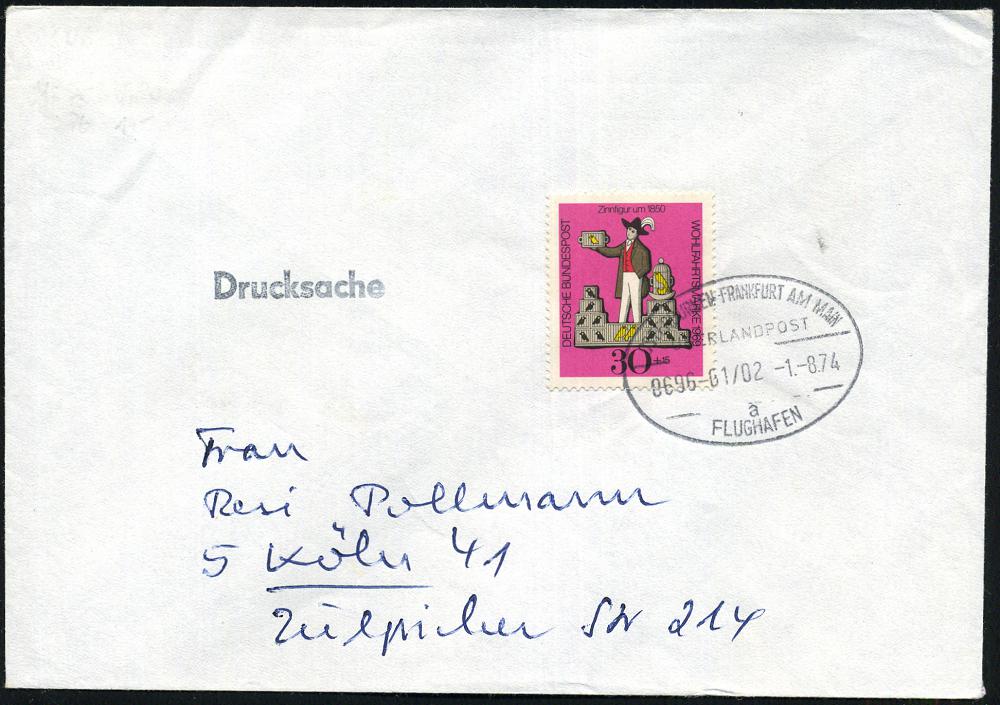 Zinnfigur um 1850
DEUTSCHE BUNDESPOST
WOHLFAHRTSMARKE 1969
30 +15
Drucksache
FRANKFURT AM MAIN
ÜBERLANDPOST
8696-01/02 -1.-8.74
a
FLUGHAFEN
Frau
Resi Pollmann
5 Köln 41
Zülpicher Str 214